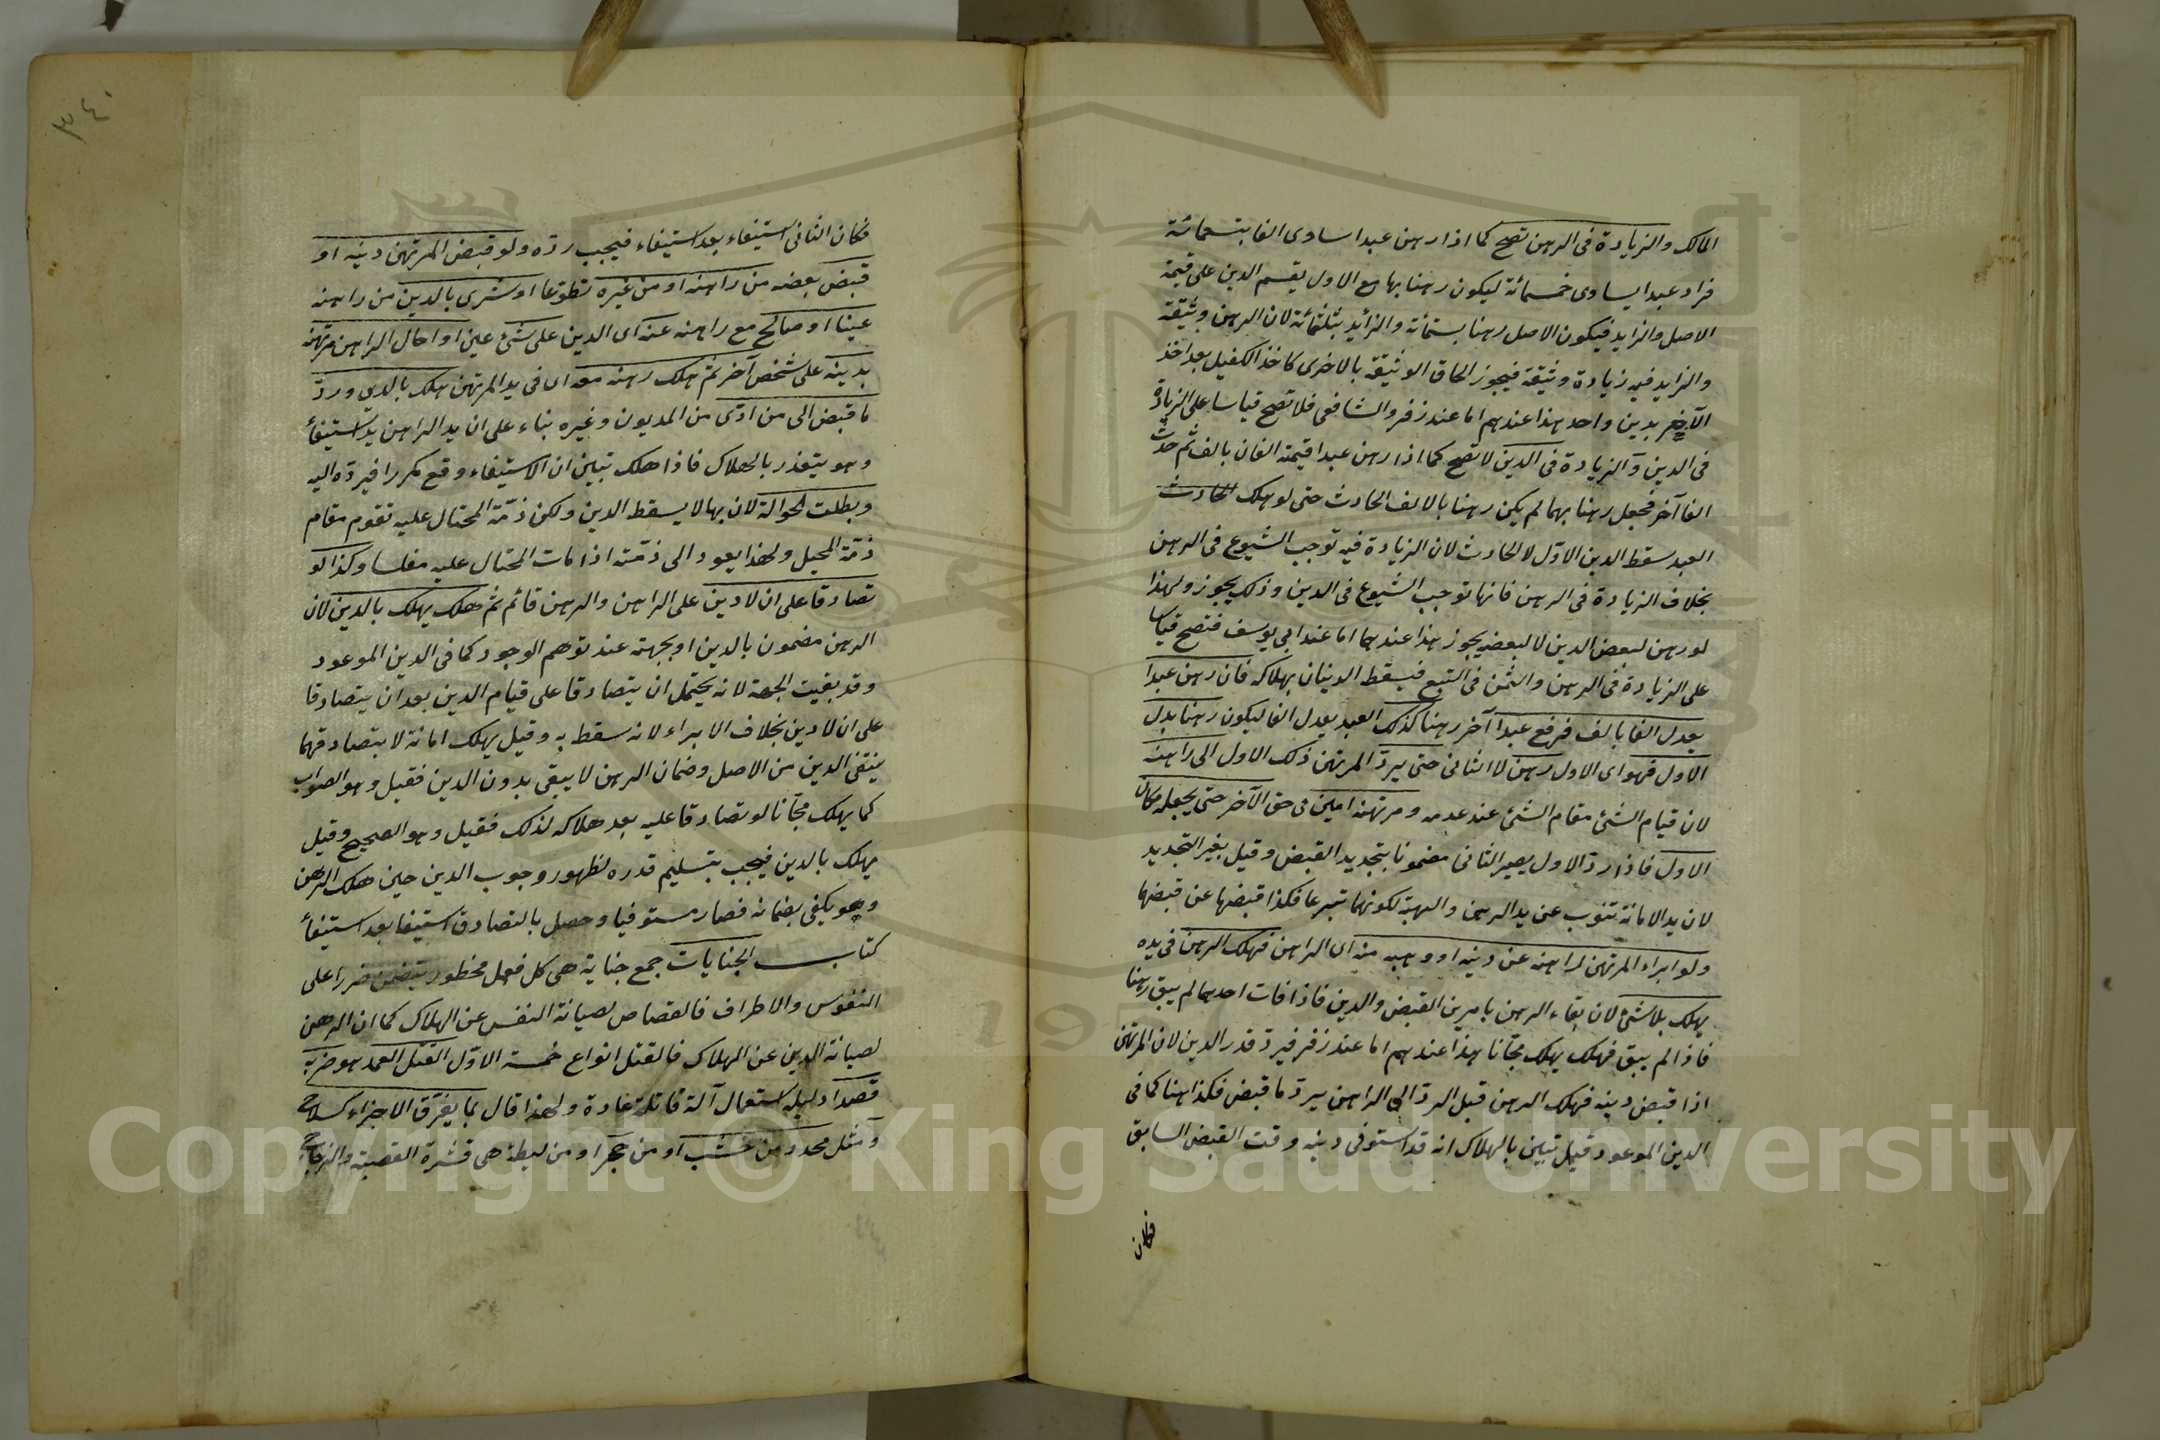 المالك والزيادة في الرهن تصح كما اذا رهن عبدا ساوى الفا بتسعمائة
فزاد عبدا يساوى خمسمائة ليكون رهنا بها مع الاول يقسم الدين على قيمة
الاصل والزايد فيكون الاصل رهنا بستمائة والزايد بثلثمائة لان الرهن وثيقة
والزايد فيه زيادة وثيقة فيجوز الحاق الوثيقة بالاخرى كاخذ الكفيل بعد اخذ
الآخر بدين واحد هذا عندهم اما عند زفر والشافعى فلا تصح قياسا على الزيادة
في الدين والزيادة في الدين لا تصح كما اذا رهن عبدا قيمته الفان بالف ثم حدث
الفا آخر فجعل رهنا بهما لم يكن رهنا بالالف الحادث حتى لو هلك
العبد سقط الدين الاول لا الحادث لان الزيادة فيه توجب الشيوع في الرهن
بخلاف الزيادة في الرهن فانها توجب الشيوع في الدين وذلك يجوز ولهذا
لو رهن لبعض الدين لا لبعضه يجوز هذا عندهما اما عند ابي يوسف فتصح قياسا
على الزيادة في الرهن والثمن في البيع فيسقط الدينان بهلاكه فان رهن عبدا
يعدل الفا بالف فرفع عبدا آخر رهنا كذلك العبد يعدل الفا ليكون رهنا بدل
الاول فهو اى الاول رهن لا الثانى حتى يرد المرتهن ذلك الاول الى راهنه
لان قيام الشئ مقام الشئ عند عدمه ومرتهنه امين في حق الآخر حتى يجعله مكان
الاول فاذا رد الاول يصير الثانى مضمونا بتجديد القبض وقيل بغير التجديد
لان يد الامانة تنوب عن يد الرهن والهبة لكونهما تبرعا فكذا قبضها عن قبضها
ولو ابراء المرتهن لراهنه عن دينه او وهبه منه اى الراهن فهلك الرهن في يده
يهلك بلا شئ لان بقاء الرهن بامرين القبض والدين فاذا فات احدهما لم يبق رهنا
فاذا لم يبق فهلك يهلك مجّانا هذا عندهم اما عند زفر فيرد قدر الدين لان المرتهن
اذا قبض دينه فهلك الرهن قبل الرد الى الراهن يرد ما قبض فكذا هنا كما في
الدين الموعود قيل تبين بالهلاك انه قد استوفى دينه وقت القبض السابق
فكان
٣٤٠
فكان الثانى استيفاء بعد استيفاء فيجب رده ولو قبض المرتهن دينه او
قبض بعضه من راهنه او من غيره تطوعا او شرى بالدين من راهنه
عينا او صالح مع راهنه عنه اى الدين على شئ عين او احال الراهن مرتهنه
بدينه على شخص آخر ثم هلك رهنه معه اى في يد المرتهن هلك بالدين ورد
ما قبض الى من ادى من المديون وغيره بناء على ان يد الراهن يد استيفاء
وهو يتعذر بالهلاك فاذا هلك تبين ان الاستيفاء وقع مكررا فيرده اليه
وبطلت الحوالة لان بها لا يسقط الدين ولكن ذمّة المحتال عليه تقوم مقام
ذمّة المحيل ولهذا يعود الى ذمّته اذا مات المحتال عليه مفلسا وكذا لو
تصادقا على ان لا دين على الراهن والرهن قائم ثم هلك يهلك بالدين لان
الرهن مضمون بالدين او بجهته عند توهم الوجود كما في الدين الموعود
وقد بقيت الجهة لانه يحتمل ان يتصادقا على قيام الدين بعد ان يتصادقا
على ان لا دين بخلاف الابراء لانه سقط به وقيل يهلك امانة لا بتصادقهما
ينتفى الدين من الاصل وضمان الرهن لا يبقى بدون الدين فقيل وهو الصواب
كما يهلك مجّانا لو تصادقا عليه بعد هلاكه لذلك فقيل وهو الصحيح وقيل
يهلك بالدين فيجب بتسليم قدره لظهور وجوب الدين حين هلك الرهن
وهو يكفى بضمانه فصار مستوفيا وحصل بالتصادق استيفا بعد استيفاء
كتاب الجنايات جمع جناية هى كل فعل محظور يتضمن ضررا على
النفوس والاطراف فالقصاص لصيانة النفس عن الهلاك كما ان الرهن
لصيانة الدين عن الهلاك فالقتل انواع خمسة الاوّل القتل العمد هو ضربه
قصدا دليله استعمال آلة قاتلة عادة ولهذا قال بما يفرّق الاجزاء كسلاح
ومثل محدد من خشب او من حجر او من ليطة هى قشرة القصبة والزجاج
Copyright © King Saud University